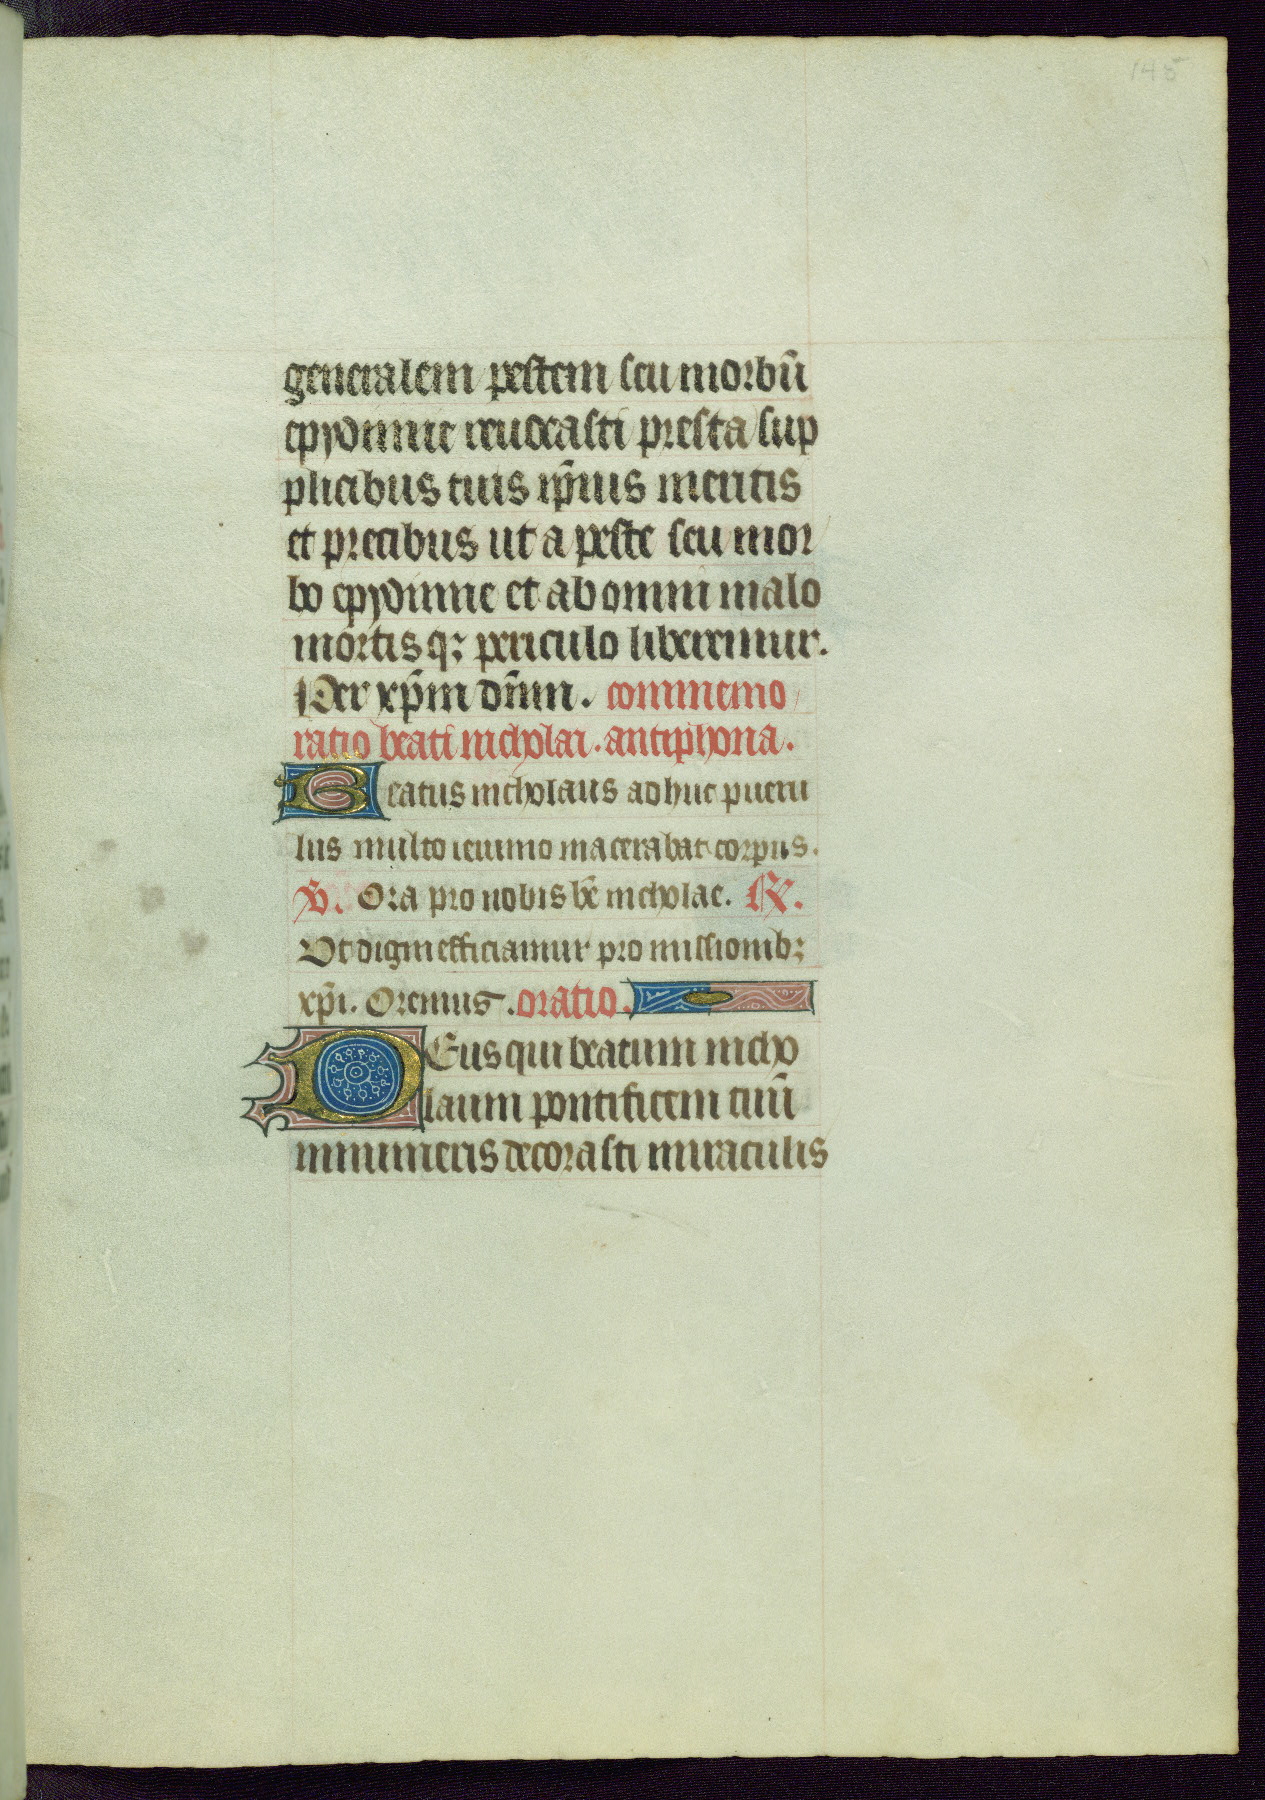 145
generalem pestem seu morbū
epydimie reuocasti presta sup
plicibus tuis ip̄ius meritis
et precibus ut a peste seu mor
bo epydimie et ab omni malo
mortis qꝫ periculo liberemur.
Per xp̄m dn̄m. commemo
ratio beati nicholai. antiphona.
Beatus nicholaus adhuc pueru
lus multo ieiunio macerabat corpus.
℣. Ora pro nobis bē nicholae. ℟.
Ut digni efficiamur promissionibꝫ
xp̄i. Oremus. oratio.
DEus qui beatum nicho
laum pontificem tuū
innumeris decorasti miraculis